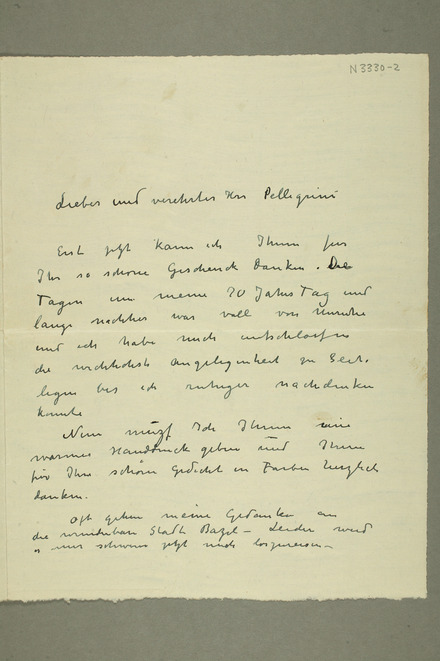 N 3330-2
Lieber und verehrter Herr Pellegrini
Erst jetzt kann ich Ihnen für
Ihr so schöne Geschenck danken. Die
Tagen um meine 70 Jahrs Tag und
lange nachher war voll von Unruhe
und ich habe mich entschlossen
die wichtichste angelegenheit zu
legen bis ich ruhiger nachdenken
konnte
Nun muszt Ich Ihnen eine
warmen Handdruck geben und Ihnen
für Ihre schöne Gedicht in Farben herzlich
danken.
Oft gehen meine Gedanken an
die wunderbare Stadt Bazel – Leider wird
es uns schwer jetzt